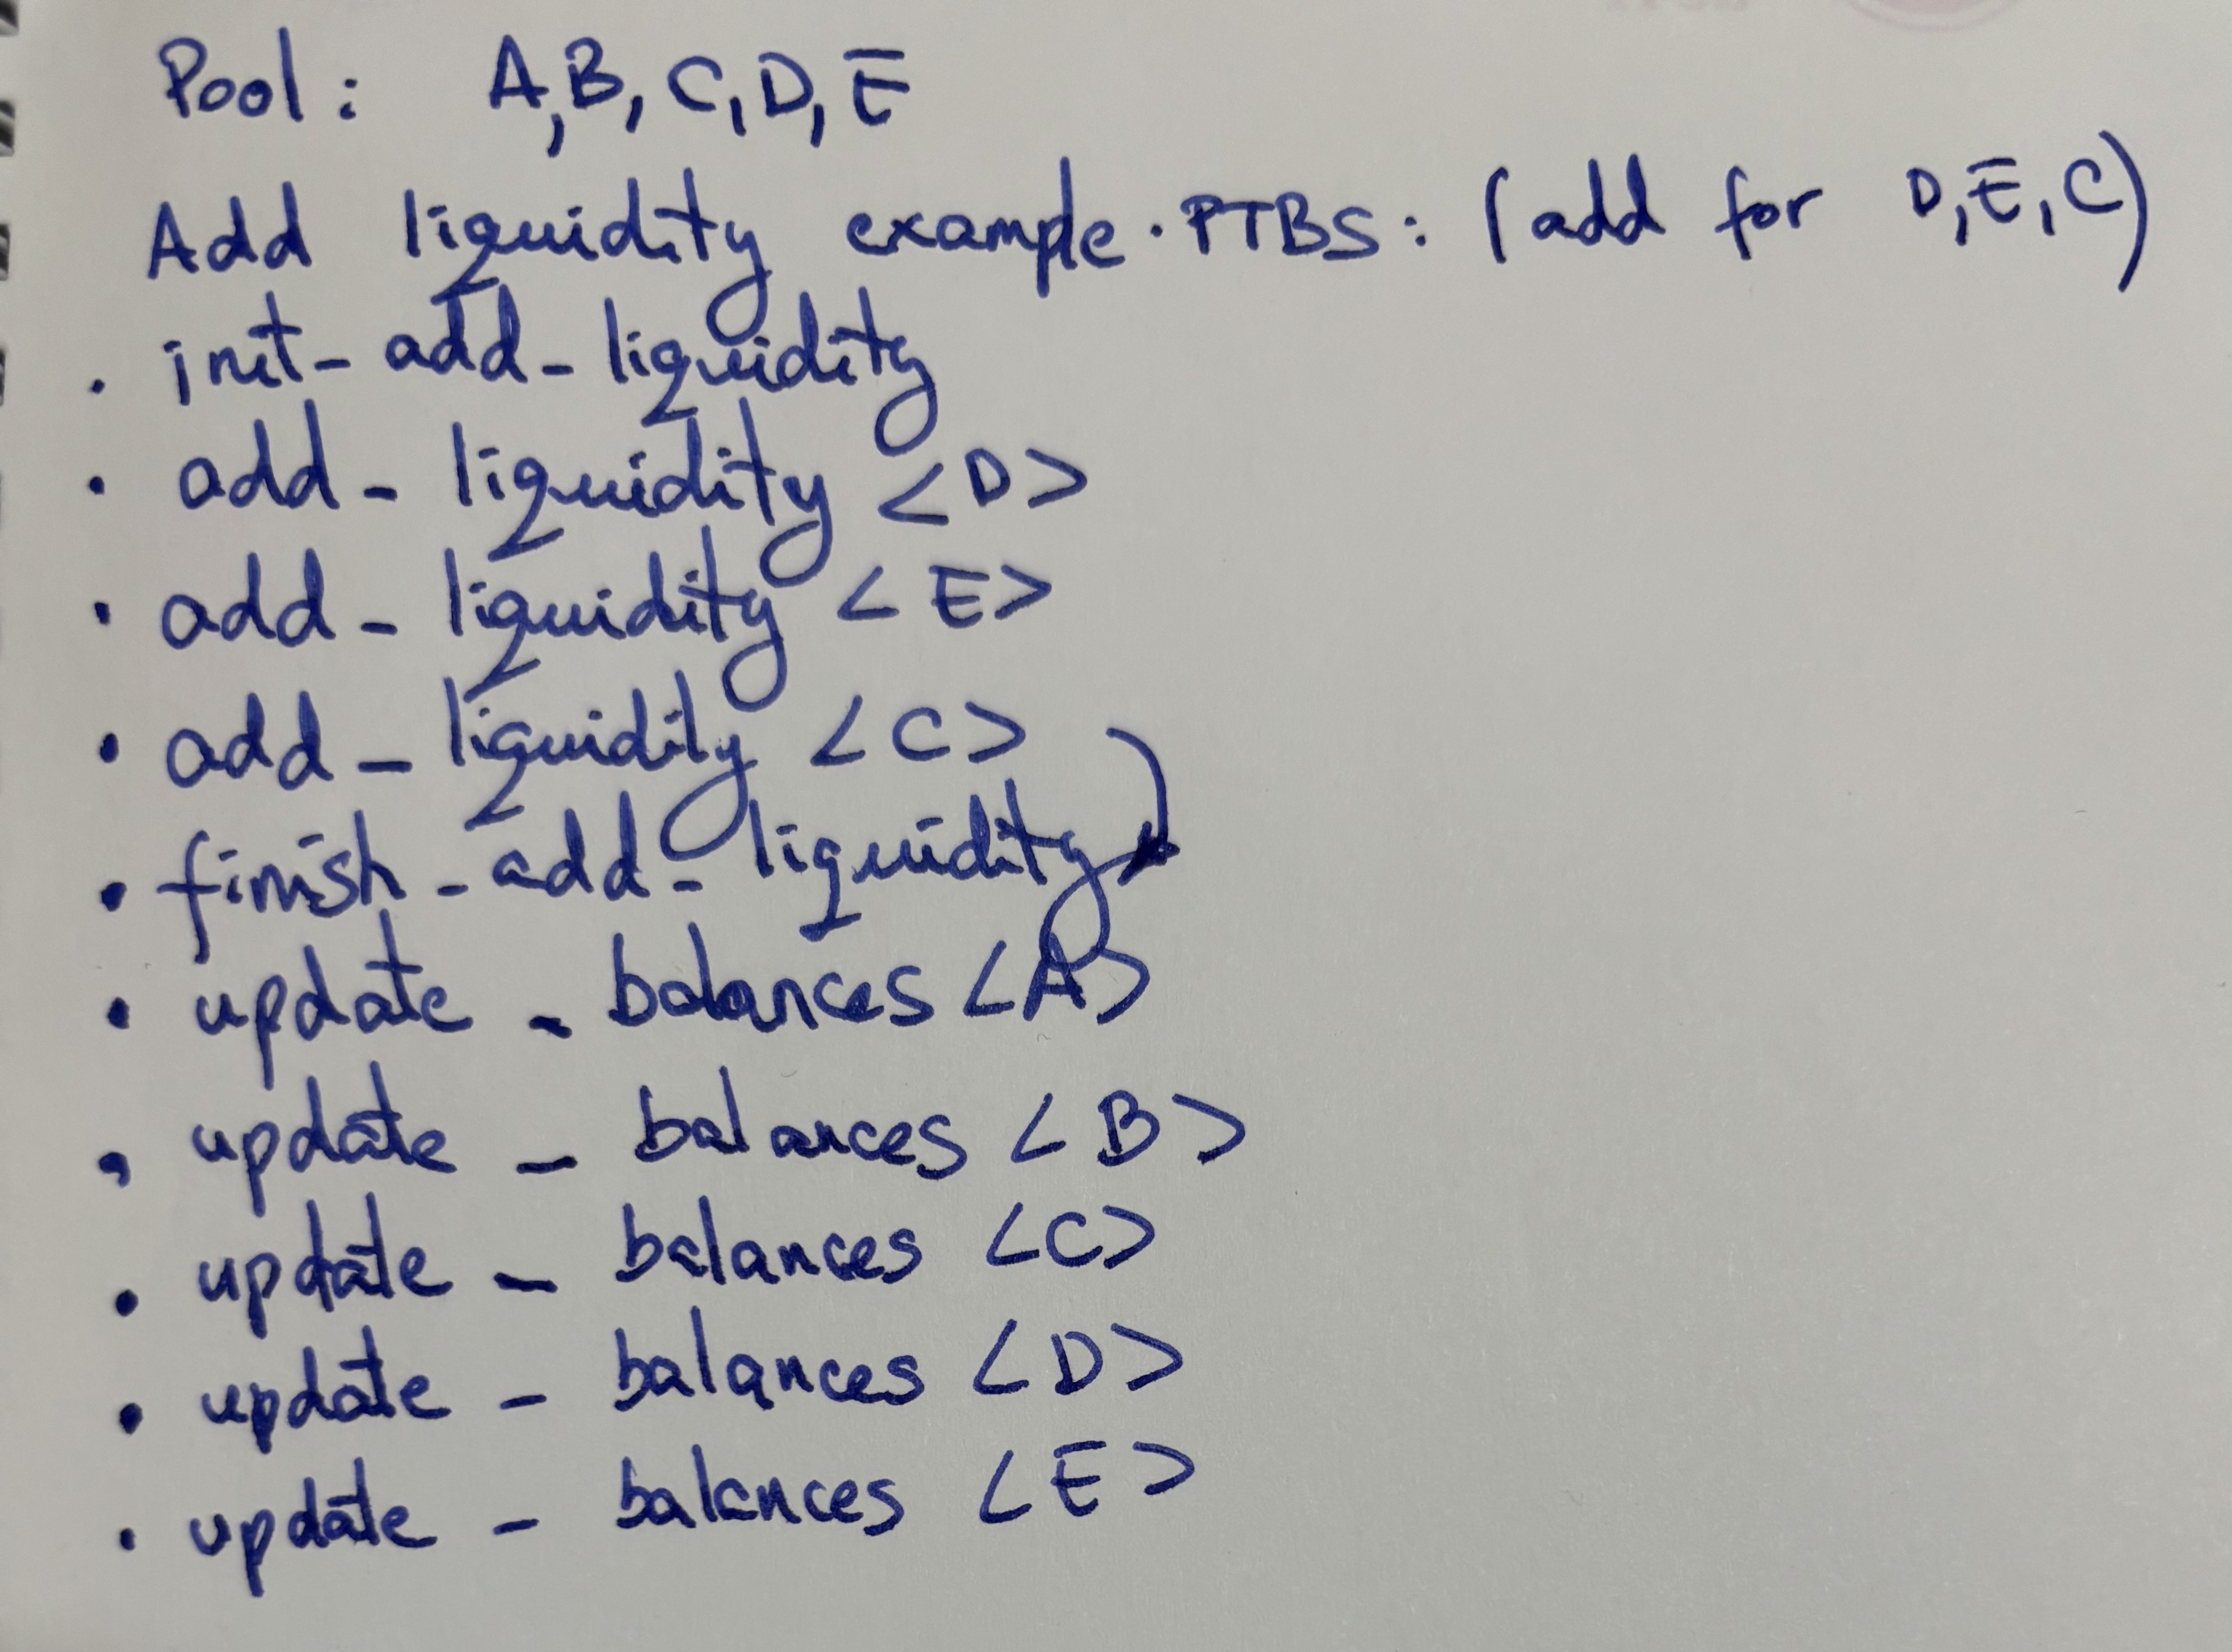 Pool: A, B, C, D, E
Add liquidity example. PTBS: (add for D, E, C)
· init_add_liquidity
· add_liquidity <D>
· add_liquidity <E>
· add_liquidity <C>
· finish_add_liquidity
· update_balances <A>
· update_balances <B>
· update_balances <C>
· update_balances <D>
· update_balances <E>